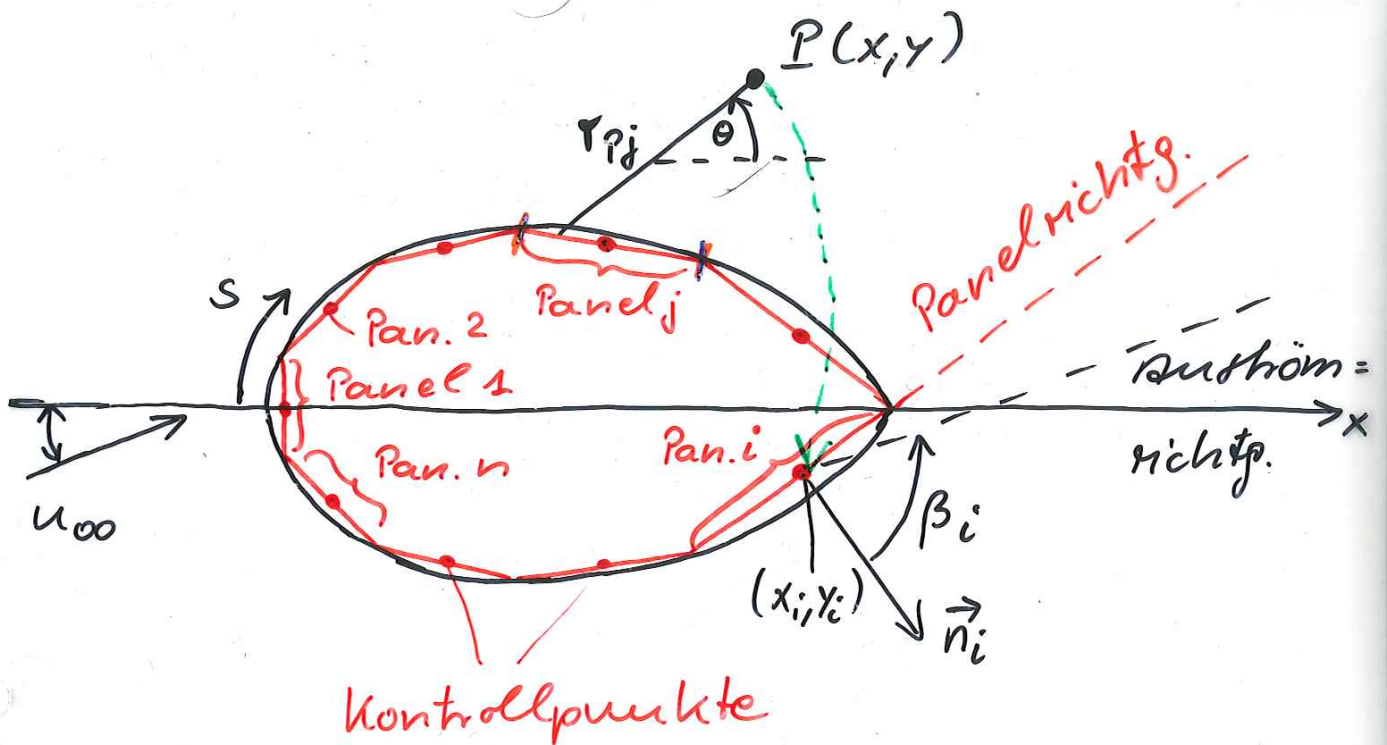 P(x,y)
r_Pj
θ
Panelrichtg.
S
Panel j
Pan. 2
Panel 1
Anström=
richtg.
x
Pan. i
Pan. n
u∞
βi
(xi,yi)
n⃗i
Kontrollpunkte